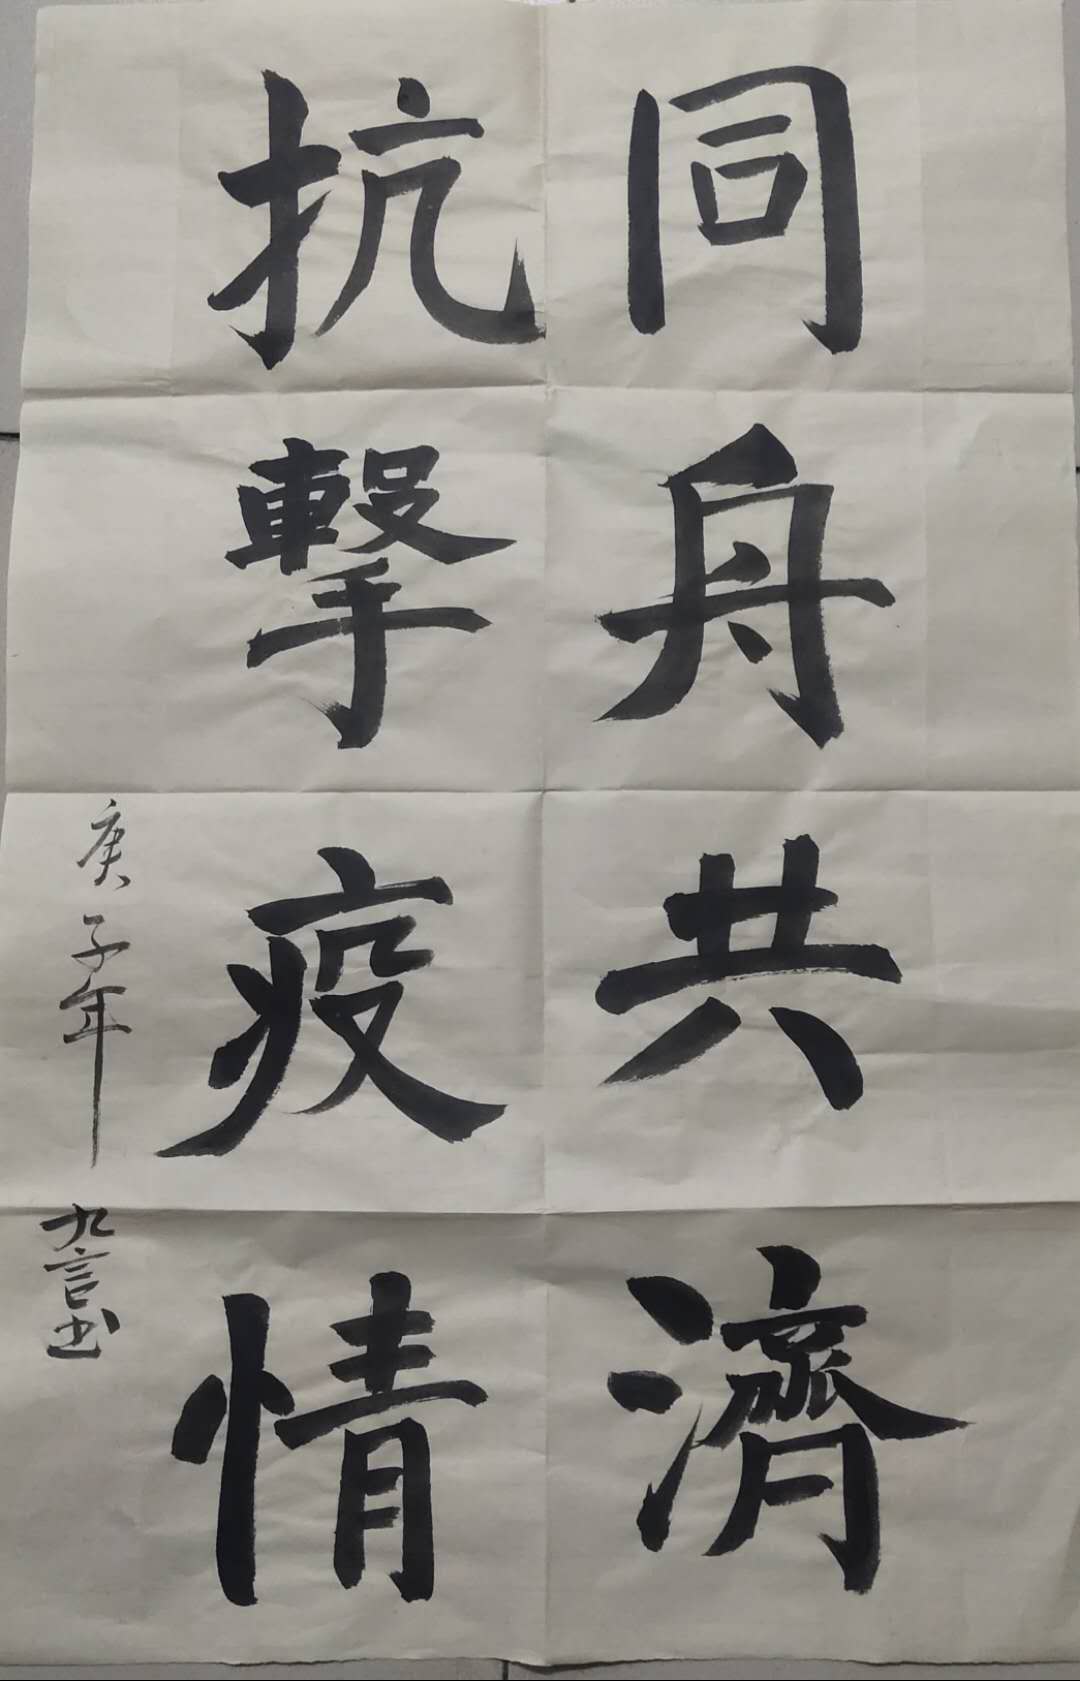 同舟共濟
抗擊疫情
庚子年 九言书